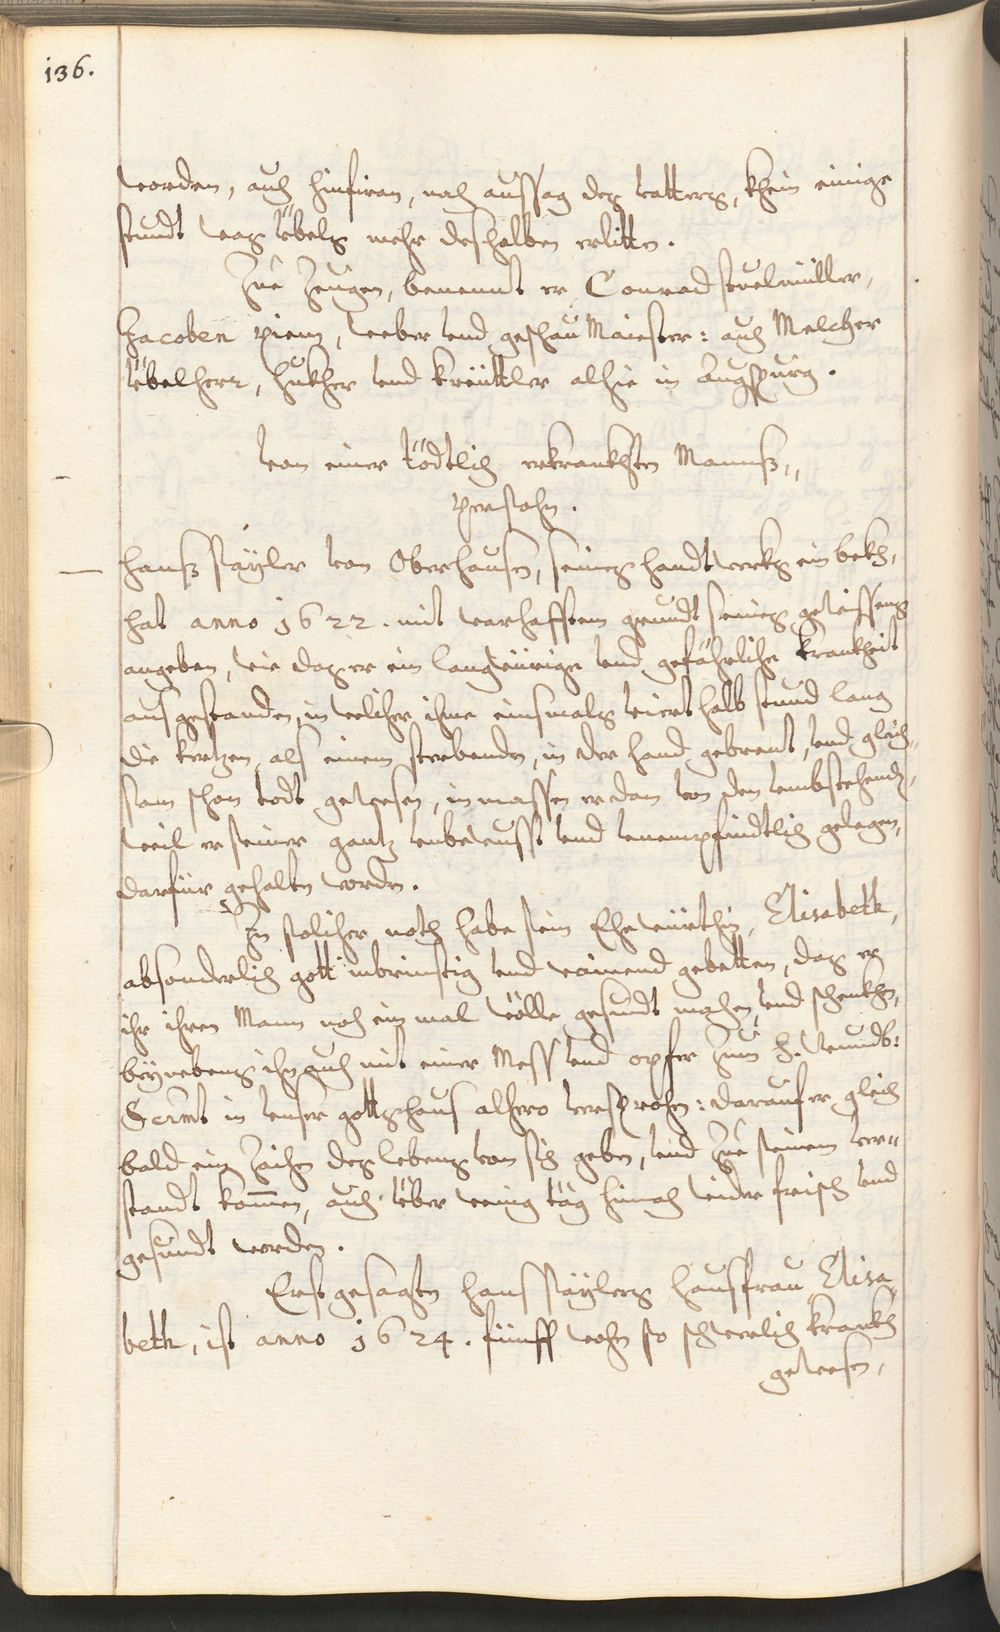 136.
worden, auch hinfiran, nach aussag des vatters, khein einige
stundt was übels mehr deshalben erlitten.
Zue Zeugen, benennt er Conrad Stuelmüller,
Jacoben Riem, weber vnd geschau Maister: auch Melcher
Übelherr, Hukher vnd kreüttler alhie in Augspurg.
Von einer tödtlich erkrankhten Mannß„
persohn.
Hanß Sayler von Oberhausen, seines handtwerks ein bekh,
hat anno 1622. mit warhafftem grundt seines gewissens
angeben, wie das er ein langwürige vnd gefährliche krankheit
ausgestanden, in welicher ihme einsmals vierthalb stund lang
die kertzen, als einem sterbenden, in der hand gebrent, vnd gleich„
sam schon todt gewesen, inmassen er dan von den vmbstehenden,
weil er seiner gantz vnbewusst vnd vnempfindtlich gelegen,
darfür gehalten worden.
In solicher noth habe sein Ehewürthin, Elisabeth,
absonderlich gott inbrinstig vnd wainend gebetten, das er
ihr ihren Mann noch ein mal wölle gesundt machen, vnd schenkhen,
beynebens ihn auch mit einer Mess vnd opfer zum H. Wundb:
Scrmt in vnser gottshaus alhero versprochen: darauf er gleich
bald ein zaichen des lebens von sich geben, vnd zue seinem ver„
standt kom̅en, auch über wenig täg hinnach wider frisch vnd
gesundt worden.
Erstgesagten Hans Saylers hausfrau Elisa„
beth, ist anno 1624. fünff wochen so schwerlich krankh
gewesen,